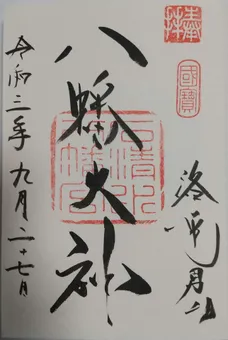 奉拝
國寶
洛
八幡大神
石清水
八幡宮
令和三年九月二十七日